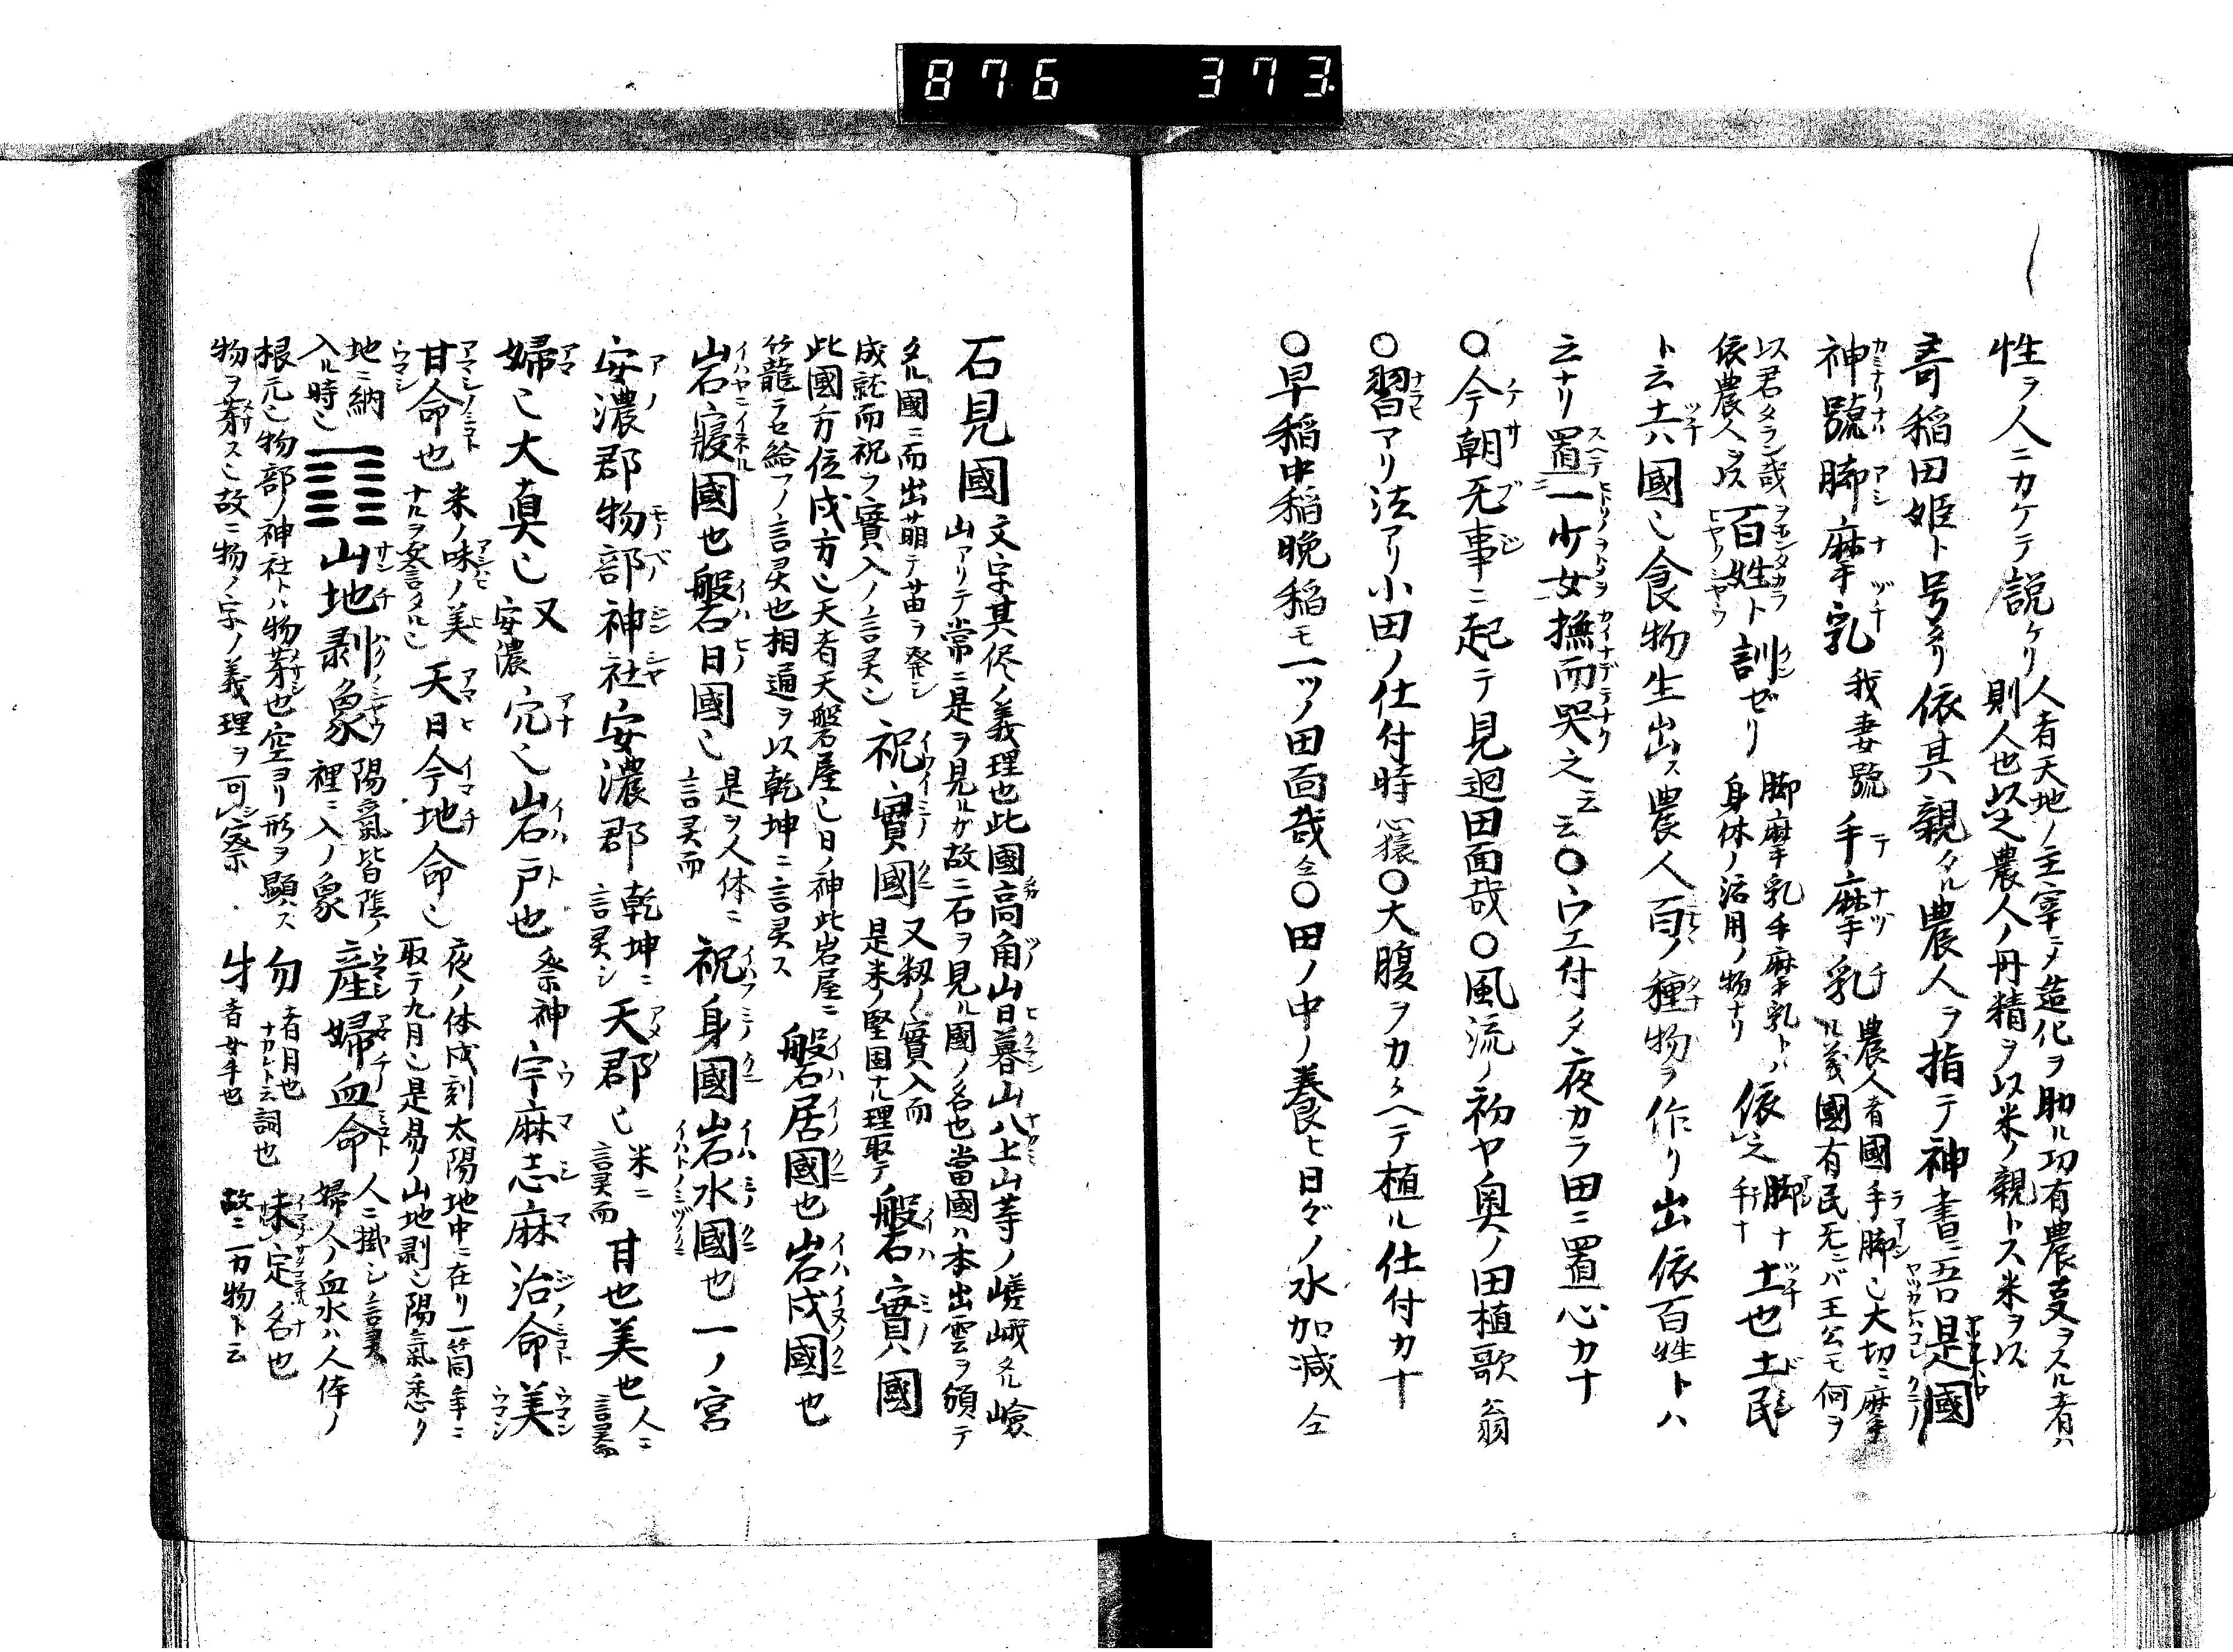 876 373
性ヲ人ニカケテ説ケリ人者天地ノ主宰ニメ造化ヲ助ル切有農叓ヲスル者ハ
則人也以之農人ノ丹精ヲ以米ノ親トス米ヲ以
奇稲田姫ト号タリ依其親タル農人ヲ指テ神書ニ吾是國
神號脚摩乳我妻號手摩乳農人者國手脚也大切ニ摩
ル義國有民无ニバ王公モ何ヲ
以君タラン哉
依農人ヲ以百姓ト訓ゼリ脚摩乳手摩乳トハ
身体ノ活用ノ物ナリ依之脚ナ
手ナ土也土民
ト云土ハ國也食物生出ス農人百ノ種物ヲ作リ出依百姓トハ
云ナリ置一少女撫而哭之云云〇ウエ付タ夜カラ田ニ置心カナ
〇今朝无事ニ起テ見廻田面哉〇風流ノ初ヤ奥ノ田植歌翁
〇習アリ法アリ小田ノ仕付時心猿〇大腹ヲカヽヘテ植ル仕付カナ
〇早稲中稲晩稲モ一ツノ田面哉仝〇田ノ中ノ養ヒ日々ノ水加減仝
石見國文字其侭ノ義理也此國高角山日暮山八上山等ノ嵯峨タル嶮
山アリテ常ニ是ヲ見ルガ故ニ石ヲ見ル國ノ名也當國ハ本出雲ヲ頒テ
タル國ニ而出萠テ苗ヲ発シ
成就而祝フ實入ノ言灵也祝實國又籾ノ實入而
是米ノ堅固ナル理取テ磐實國
此國方位戌方也天者天磐屋也日ノ神此岩屋ニ
籠ラセ給フノ言灵也相通ヲ以乾坤ニ言灵ス磐居國也岩戌國也
岩寢國也磐日國也是ヲ人体ニ
言灵而祝身國岩水國也一ノ宮
安濃郡物部神社安濃郡乾坤ニ
言灵シ天郡也米ニ
言灵而甘也美也人ニ
言灵而
婦也大真也又
安濃穴也岩戸也祭神宇麻志麻治命美
甘命也米ノ味ノ美
ナルヲ客言タル也天日今地命也夜ノ体戌刻太陽地中ニ在リ一箇年ニ
取テ九月也是易ノ山地剥也陽氣悉ク
地ニ納
入ル時也山地剥象陽氣皆陰ノ
裡ニ入ノ象産婦血命人ニ掛シ言灵
婦人ノ血水ハ人体ノ
根元也物部ノ神社トハ物茅也空ヨリ形ヲ顕ハス
物ヲ茅ス也故ニ物ノ字ノ義理ヲ可察勿者月也
ナカレト云詞也
牛者女手也未定名也
故ニ万物ト云